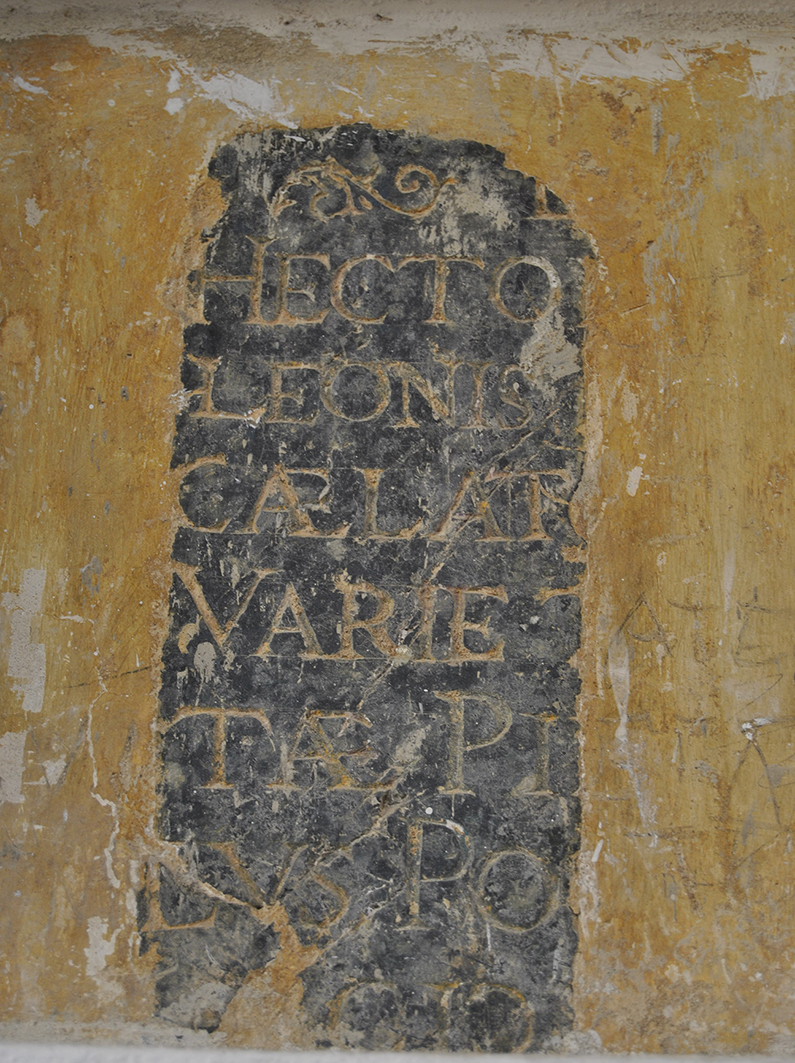 HECTO
LEONIS
CÆLAT
VARIE
TÆ PI
LVS PO